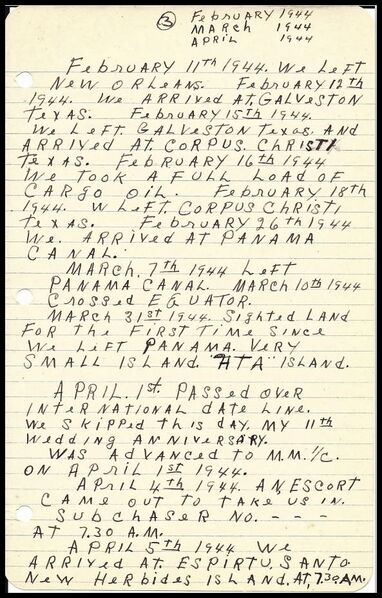 ③ February 1944
MARCH 1944
APRIL 1944
February 11th 1944. We Left
New Orleans. February 12th
1944. We ARRIVED AT, GALVESTON
Texas. February 15th 1944.
We Left. GALVESTON Texas. AND
ARRIVED AT. CORPUS. CHRISTI
Texas. February 16th 1944
We TOOK A FULL LOAD OF
CARGO OIL. February 18th
1944. W Left. CORPUS CHRISTI
Texas. February 26th 1944
We. ARRIVED AT PANAMA
CANAL.
MARCH. 7th 1944 Left
PANAMA CANAL. MARCH 10th 1944
Crossed EQUATOR.
MARCH 31st 1944. Sighted LAND
FOR the FIRST TIME SINCE
We Left PANAMA. Very
SMALL ISLAND. "ATA" ISLAND.
APRIL. 1st. PASSED OVER
INTERNATIONAL DATE LINE.
We SKIPPED THIS DAY. MY 11th
WEDDING ANNIVERSARY.
WAS ADVANCED TO M.M. 1/C.
ON APRIL 1st 1944.
APRIL 4th 1944. AN, ESCORT
CAME OUT TO TAKE US IN.
SUBCHASER NO. - - -
AT 7.30 A.M.
APRIL 5th 1944 We
ARRIVED AT. ESPIRTU. SANTO.
New Herbides ISLAND. AT, 7.30 A.M.